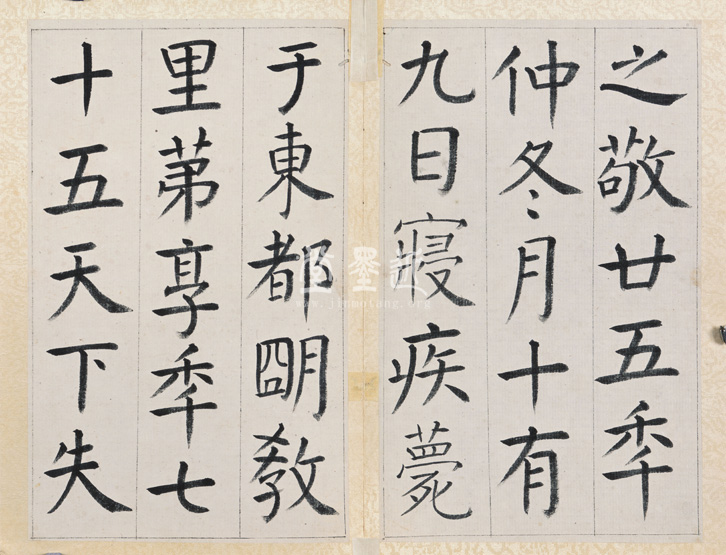 之敬廿五秊
仲冬月十有
九日寢疾薨
于東都明教
里苐享秊七
十五天下失